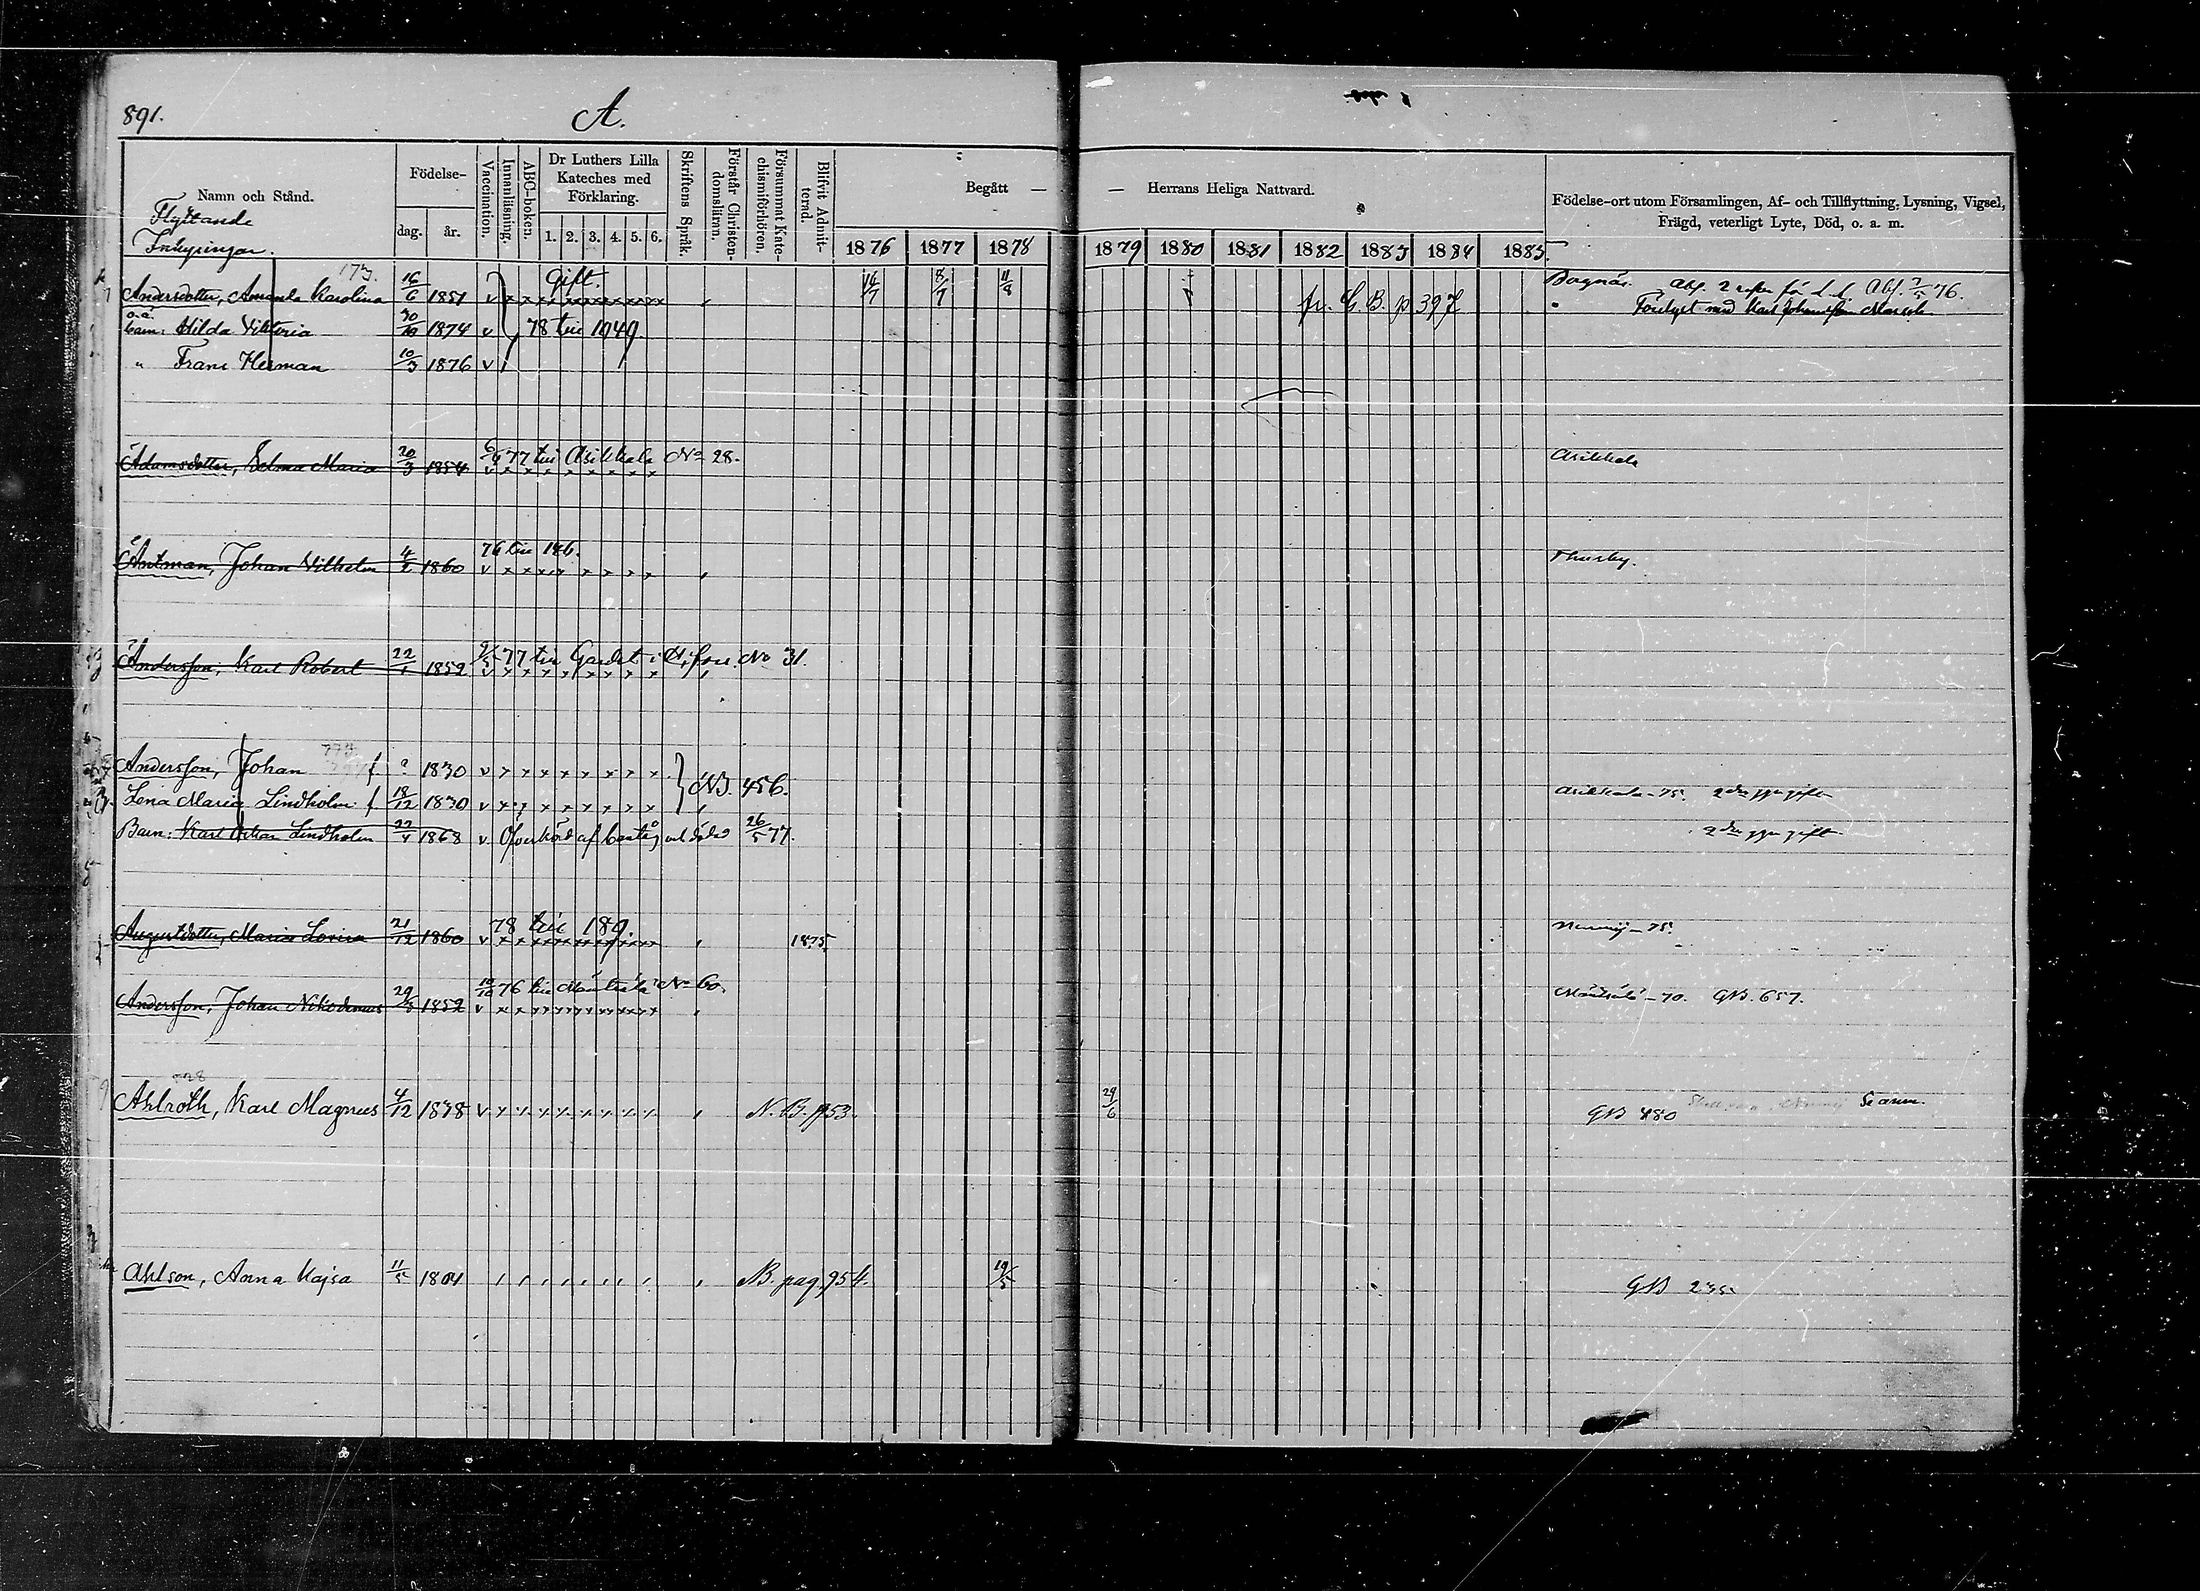 891.
A.
Namn och Stånd.
Flyttande
Inhysingar.
Födelse-
dag.
år.
Vaccination.
Innanläsning.
ABC-boken.
Dr Luthers Lilla
Kateches med
Förklaring.
1. 2. 3. 4. 5. 6.
Skriftens Språk.
Förstår Christen-
domsläran.
Försummat Kate-
chismiförhören.
Blifvit Admit-
terad.
Begått — — Herrans Heliga Nattvard.
1876 1877 1878 1879 1880 1881 1882 1883 1884 1885.
Födelse-ort utom Församlingen, Af- och Tillflyttning, Lysning, Vigsel,
Frägd, veterligt Lyte, Död, o. a. m.
173.
Andersdotter, Amanda Karolina 16/6 1851 v Gift. 16/7 8/7 11/8 fr. G. B. p 397
o.ä.
barn: Hilda Viktoria 30/10 1874 v 78 till 1049.
" Frans Herman 10/3 1876 v
Adamsdotter, Selma Maria 20/3 1854 v 6/4 77 till Asikkala No 28. Asikkala
Antman, Johan Vilhelm 4/2 1860 v 76 till 186. Thusby.
Andersson, Karl Robert 22/1 1852 v 9/5 77 till Gardet i H:fors. No 31.
Andersson, Johan f. ? 1830 v
NB. 456.
Lena Maria Lindholm f 18/12 1830 v Asikkala - 75. 2dra ggn gift
Barn: Karl Oskar Lindholm 22/4 1868 v. Öfverkörd af bantåg och dödad 26/5 77. 2dra ggn gift
Augustdotter, Maria Lovisa 21/12 1860 v 78 till 189. 1875
Andersson, Johan Nikodemus 29/3 1852 v 76 till Mäntsälä No 60. Mäntsälä - 70. GB. 657.
Ahlroth, Karl Magnus 4/12 1838 v N. B. p 953. 29/6 GB 480
Ahlson, Anna Kajsa 11/5 1804 NB. pag. 954. 19/5 GB 235